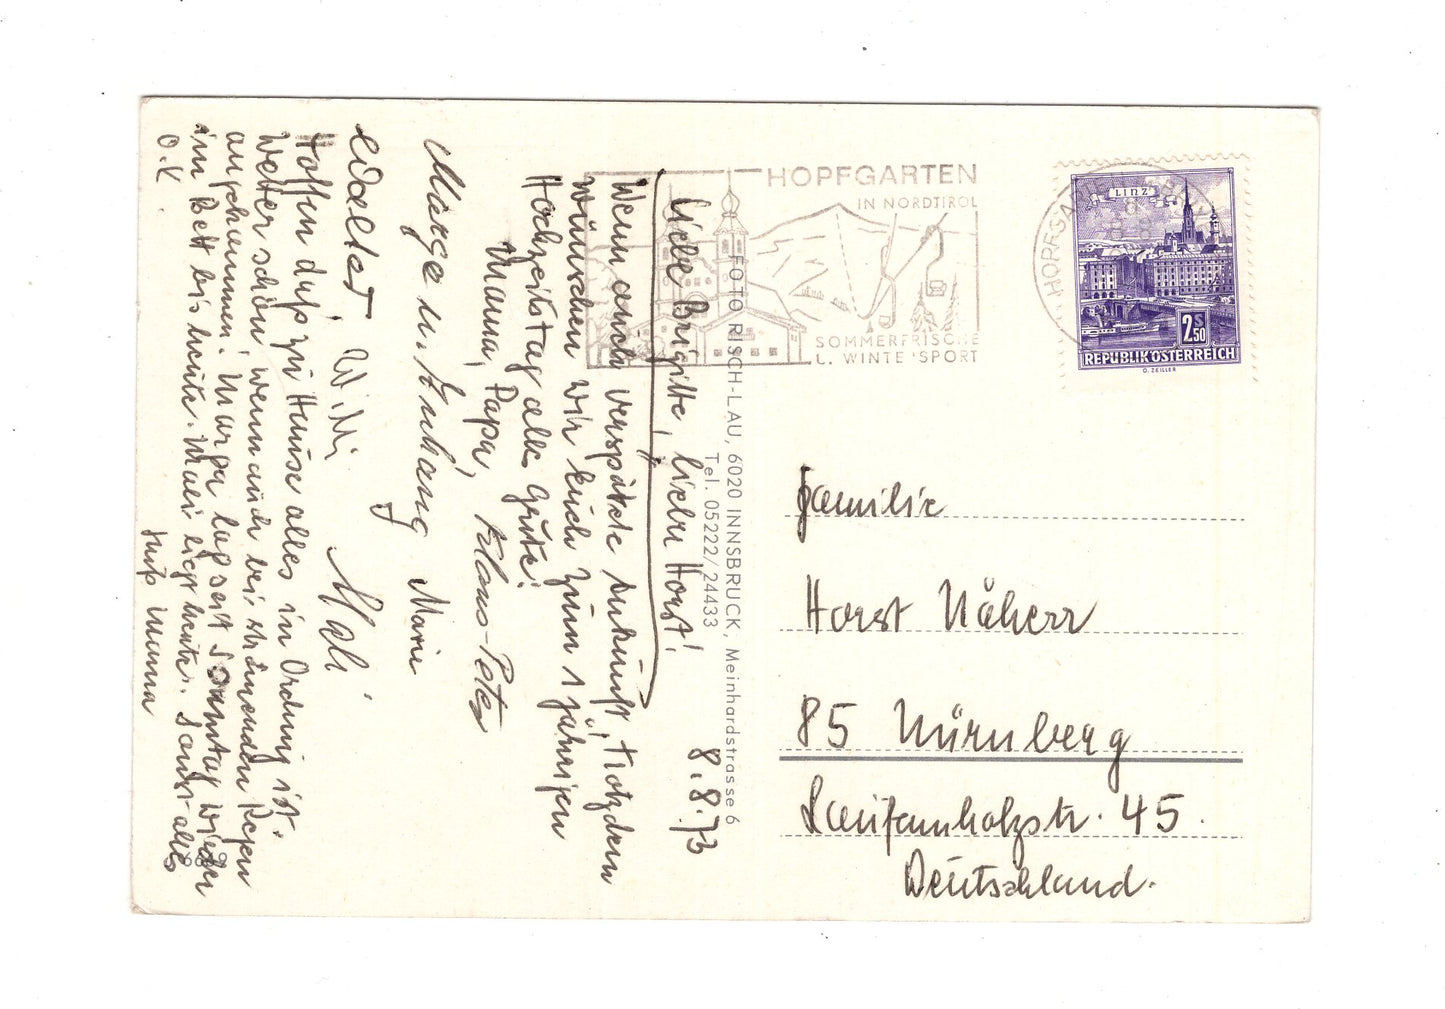 8.8.73
Liebe Brigitte, lieber Horst!
Wenn auch verspätete Ankunft, trotzdem
wünschen wir Euch zum 1 jährigen
Hochzeitstag alles Gute!
Mama, Papa, Klaus-Peter
Marge u. Anhang Marie
Walter, Willi Mali
Hoffen daß zu Hause alles in Ordnung ist.
Wetter schön wenn auch bei strömenden Regen
angekommen. Marga lag seit Sonntag wieder
im Bett bis heute. Mali liegt heute. Sonst alles
O.K. Kuß Mama
HOPFGARTEN
IN NORDTIROL
SOMMERFRISCHE
U. WINTE SPORT
HOPFGARTEN
LINZ
2 S 50
REPUBLIK ÖSTERREICH
O. ZEILLER
FOTO RISCH-LAU, 6020 INNSBRUCK, Meinhardstrasse 6
Tel. 05222/24433
Familie
Horst Näherr
85 Nürnberg
Laufamholzstr. 45.
Deutschland.